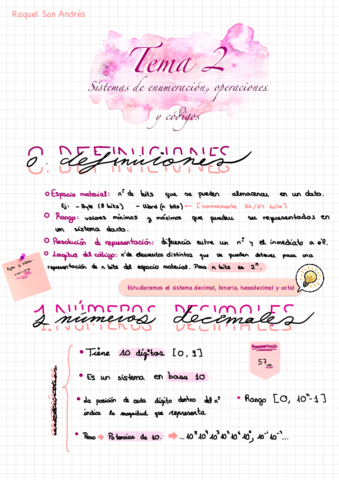 Raquel San Andrés
Tema 2
Sistemas de enumeración, operaciones
y códigos
0. DEFINICIONES
definiciones
Espacio material: nº de bits que se pueden almacenar en un dato.
Ej: - Byte (8 bits) - Libro (n bits) ← [normalmente 32/64 bits]
Rango: valores mínimos y máximos que pueden ser representados en
un sistema dado.
Resolución de representación: diferencia entre un nº y el inmediato a él.
Longitud del código: nº de elementos distintos que se pueden obtener para una
representación de n bits del espacio material. Para n bits es 2ⁿ.
Estudiaremos el sistema decimal, binario, hexadecimal y octal
1. NÚMEROS DECIMALES
números decimales
Tiene 10 dígitos [0, 9]
Es un sistema en base 10
La posición de cada dígito dentro del nº
indica la magnitud que representa.
Rango [0, 10ⁿ-1]
Peso → Potencias de 10. →
57